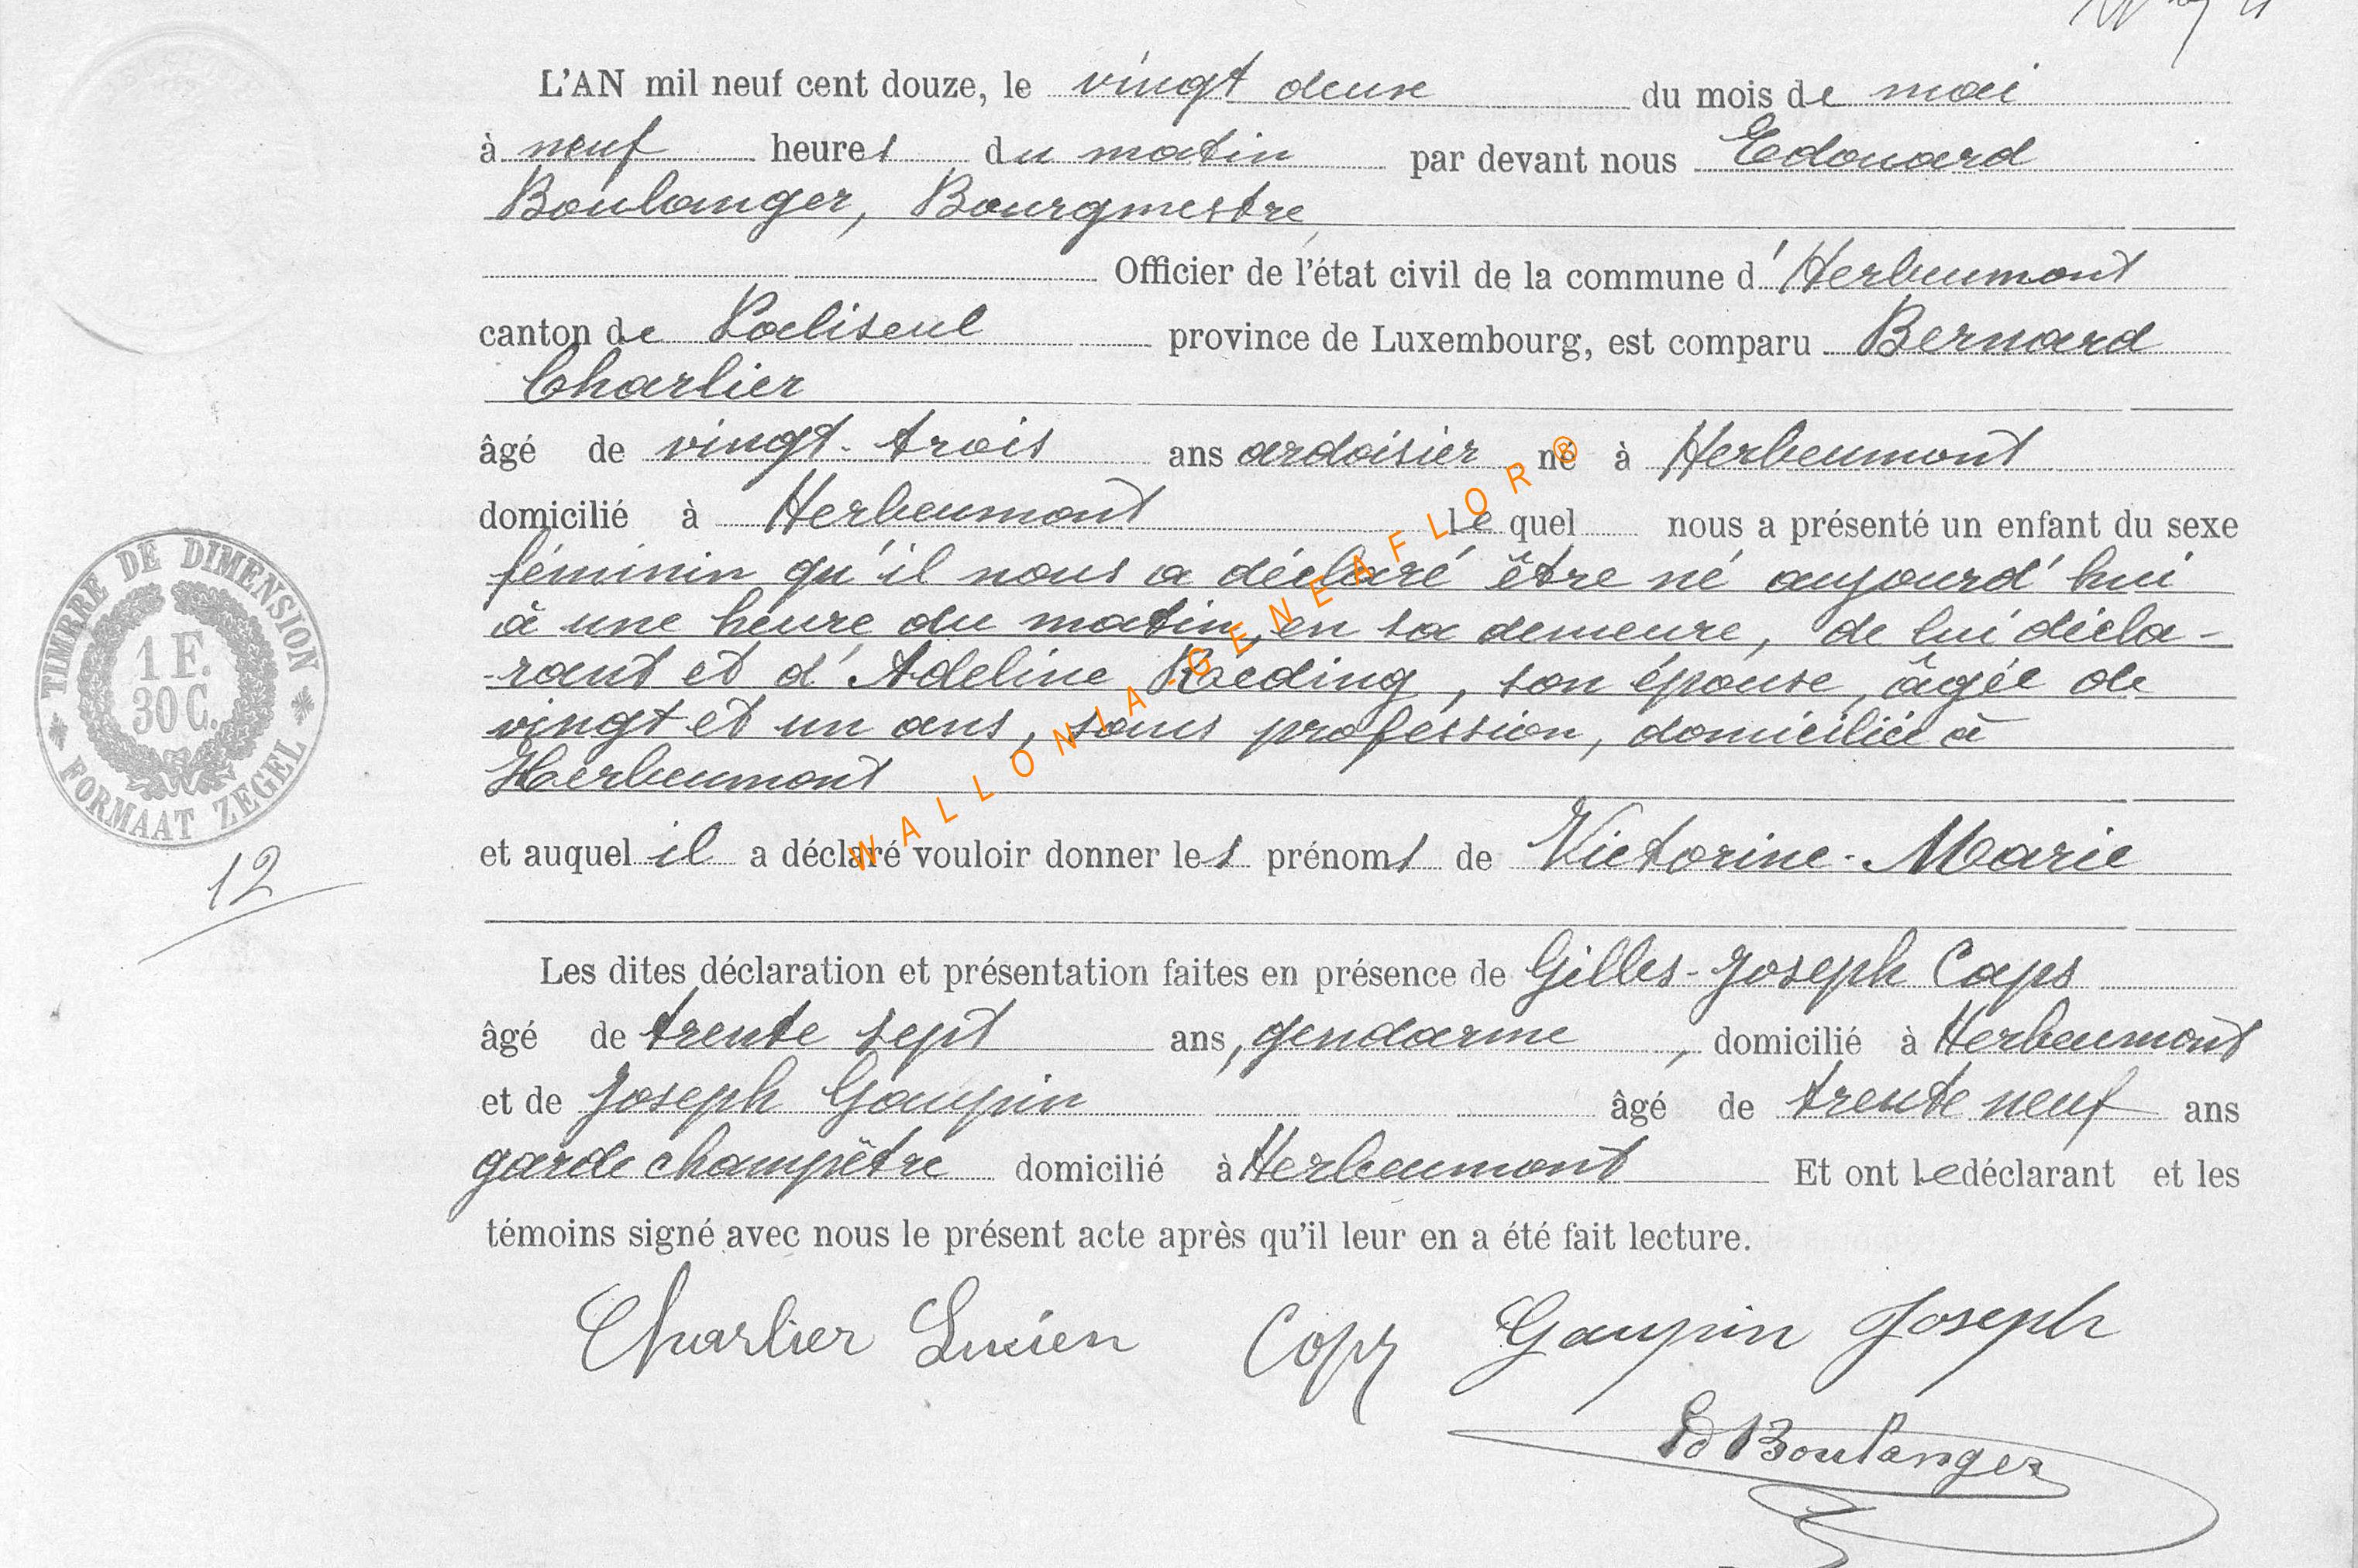 L'AN mil neuf cent douze, le vingt deux du mois de mai
à neuf heures du matin par devant nous Edouard
Boulanger, Bourgmestre,
Officier de l'état civil de la commune d'Herbeumont
canton de Paliseul province de Luxembourg, est comparu Bernard
Charlier
âgé de vingt-trois ans ardoisier né à Herbeumont
domicilié à Herbeumont lequel nous a présenté un enfant du sexe
féminin qu'il nous a déclaré être né aujourd'hui
à une heure du matin, en sa demeure, de lui décla-
-rant et d'Adeline Réding, son épouse, âgée de
vingt et un ans, sans profession, domiciliée à
Herbeumont
et auquel il a déclaré vouloir donner les prénoms de Victorine-Marie
Les dites déclaration et présentation faites en présence de Gilles-Joseph Caps
âgé de trente sept ans, gendarme, domicilié à Herbeumont
et de Joseph Gaupin âgé de trente neuf ans
garde champêtre domicilié à Herbeumont Et ont le déclarant et les
témoins signé avec nous le présent acte après qu'il leur en a été fait lecture.
Charlier Lucien Caps Gaupin Joseph
Ed Boulanger
TIMBRE DE DIMENSION
1 F.
30 C.
FORMAAT ZEGEL
12
WALLONIA-GENEAFLOR®